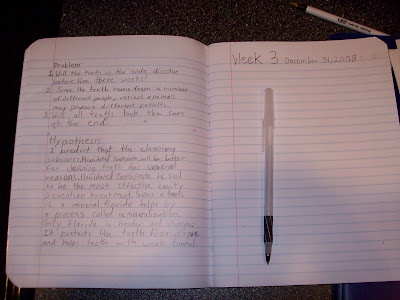 Problem:
1. Will the teeth in the soda dissolve
before the three weeks?
2. Since the teeth came from a number
of different people, various enamels
may produce different results.
3. Will all teeth look the same
at the end
Hypothesis
I predict that the cleaning
substance, fluoridated toothpaste, will be better
for cleaning teeth for several
reasons. Fluoridated toothpaste is said
to be the most effective cavity
prevention treatment. Since a tooth
is a mineral, fluoride helps by
a process called remineralization.
Only fluoride is harder and stronger.
It protects the teeth from
and helps teeth with weak enamel
Week 3 December 31, 2008